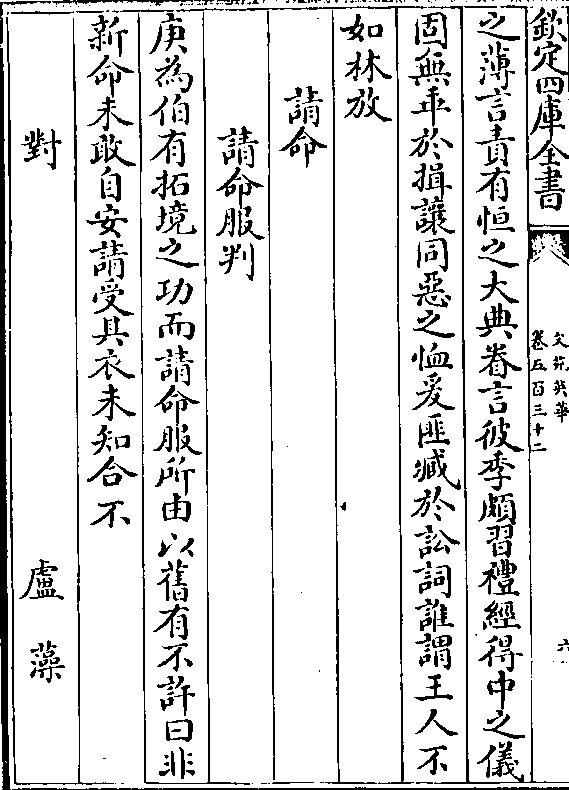 欽定四庫全書
文苑英華
卷五百三十二
六
之薄言責有恒之大典眷言彼季頗習禮經得中之儀
固無乖於揖讓同惡之恤爰匪臧於訟詞誰謂王人不
如林放
請命
請命服判
庚為伯有拓境之功而請命服所由以舊有不許曰非
新命未敢自安請受具衣未知合不
對
盧藻